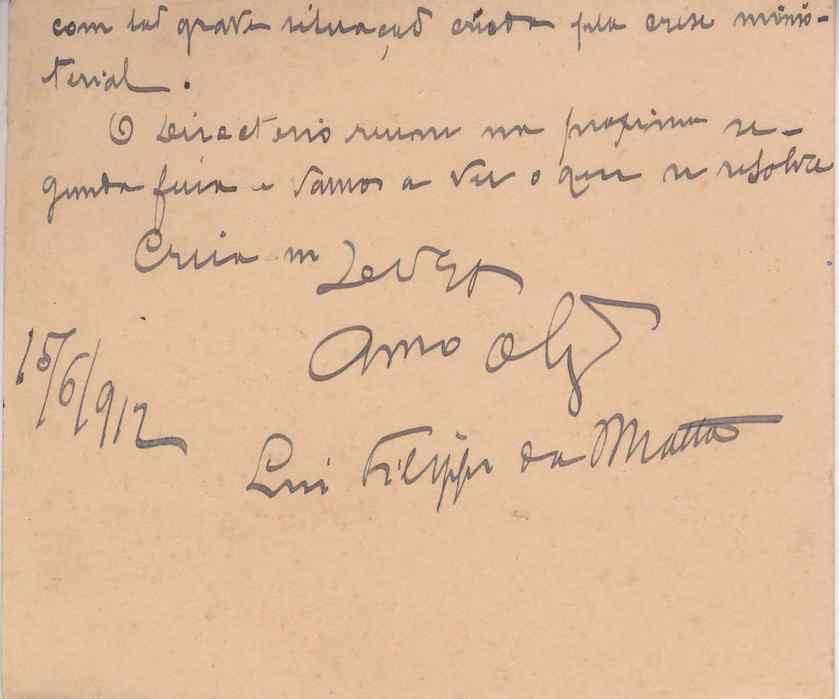 com tão grave situação criada pela crise minis-
terial.
O Directorio reune na proxima se-
gunda feira e vamos a ver o que se resolve
Creia me
Amo
15/6/912
Luis Filippe da Matta